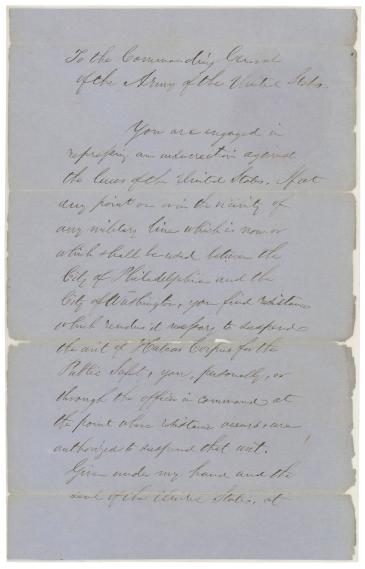 To the Commanding General
of the Army of the United States.
You are engaged in
repressing an insurrection against
the laws of the United States. If at
any point on or in the vicinity of
any military line which is now or
which shall be used between the
City of Philadelphia and the
City of Washington, you find resistance
which renders it necessary to suspend
the writ of Habeas Corpus for the
Public Safety, you, personally, or
through the officer in command at
the point where resistance occurs, are
authorized to suspend that writ.
Given under my hand and the
Seal of the United States, at